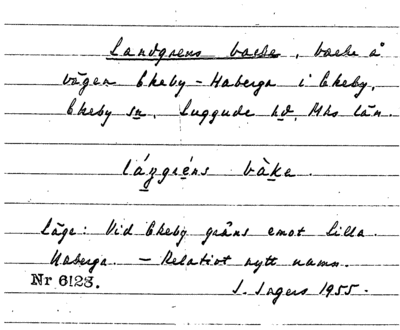 Landgrens backe, backe å
vägen Ekeby - Haberga i Ekeby,
Ekeby sn, Luggude hd, Mhs län.
lázgréns bàke.
Läge: Vid Ekeby gräns emot Lilla
Haberga. - Relativt nytt namn.
Nr 6128.
I. Ingers 1955.